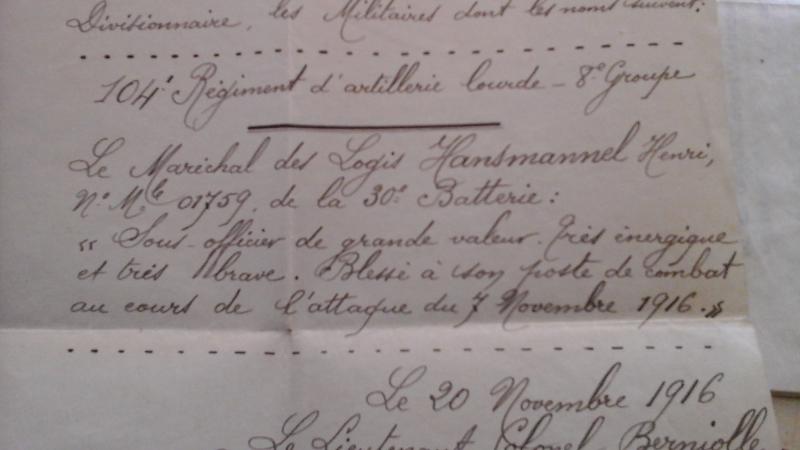 Divisionnaire, les Militaires dont les noms suivent:
104e Régiment d'artillerie lourde - 8e Groupe
Le Maréchal des Logis Hansmannel Henri,
No Mle 01759, de la 30e Batterie:
" Sous-officier de grande valeur. Très énergique
et très brave. Blessé à son poste de combat
au cours de l'attaque du 7 Novembre 1916."
Le 20 Novembre 1916
Le Lieutenant Colonel Berniolle